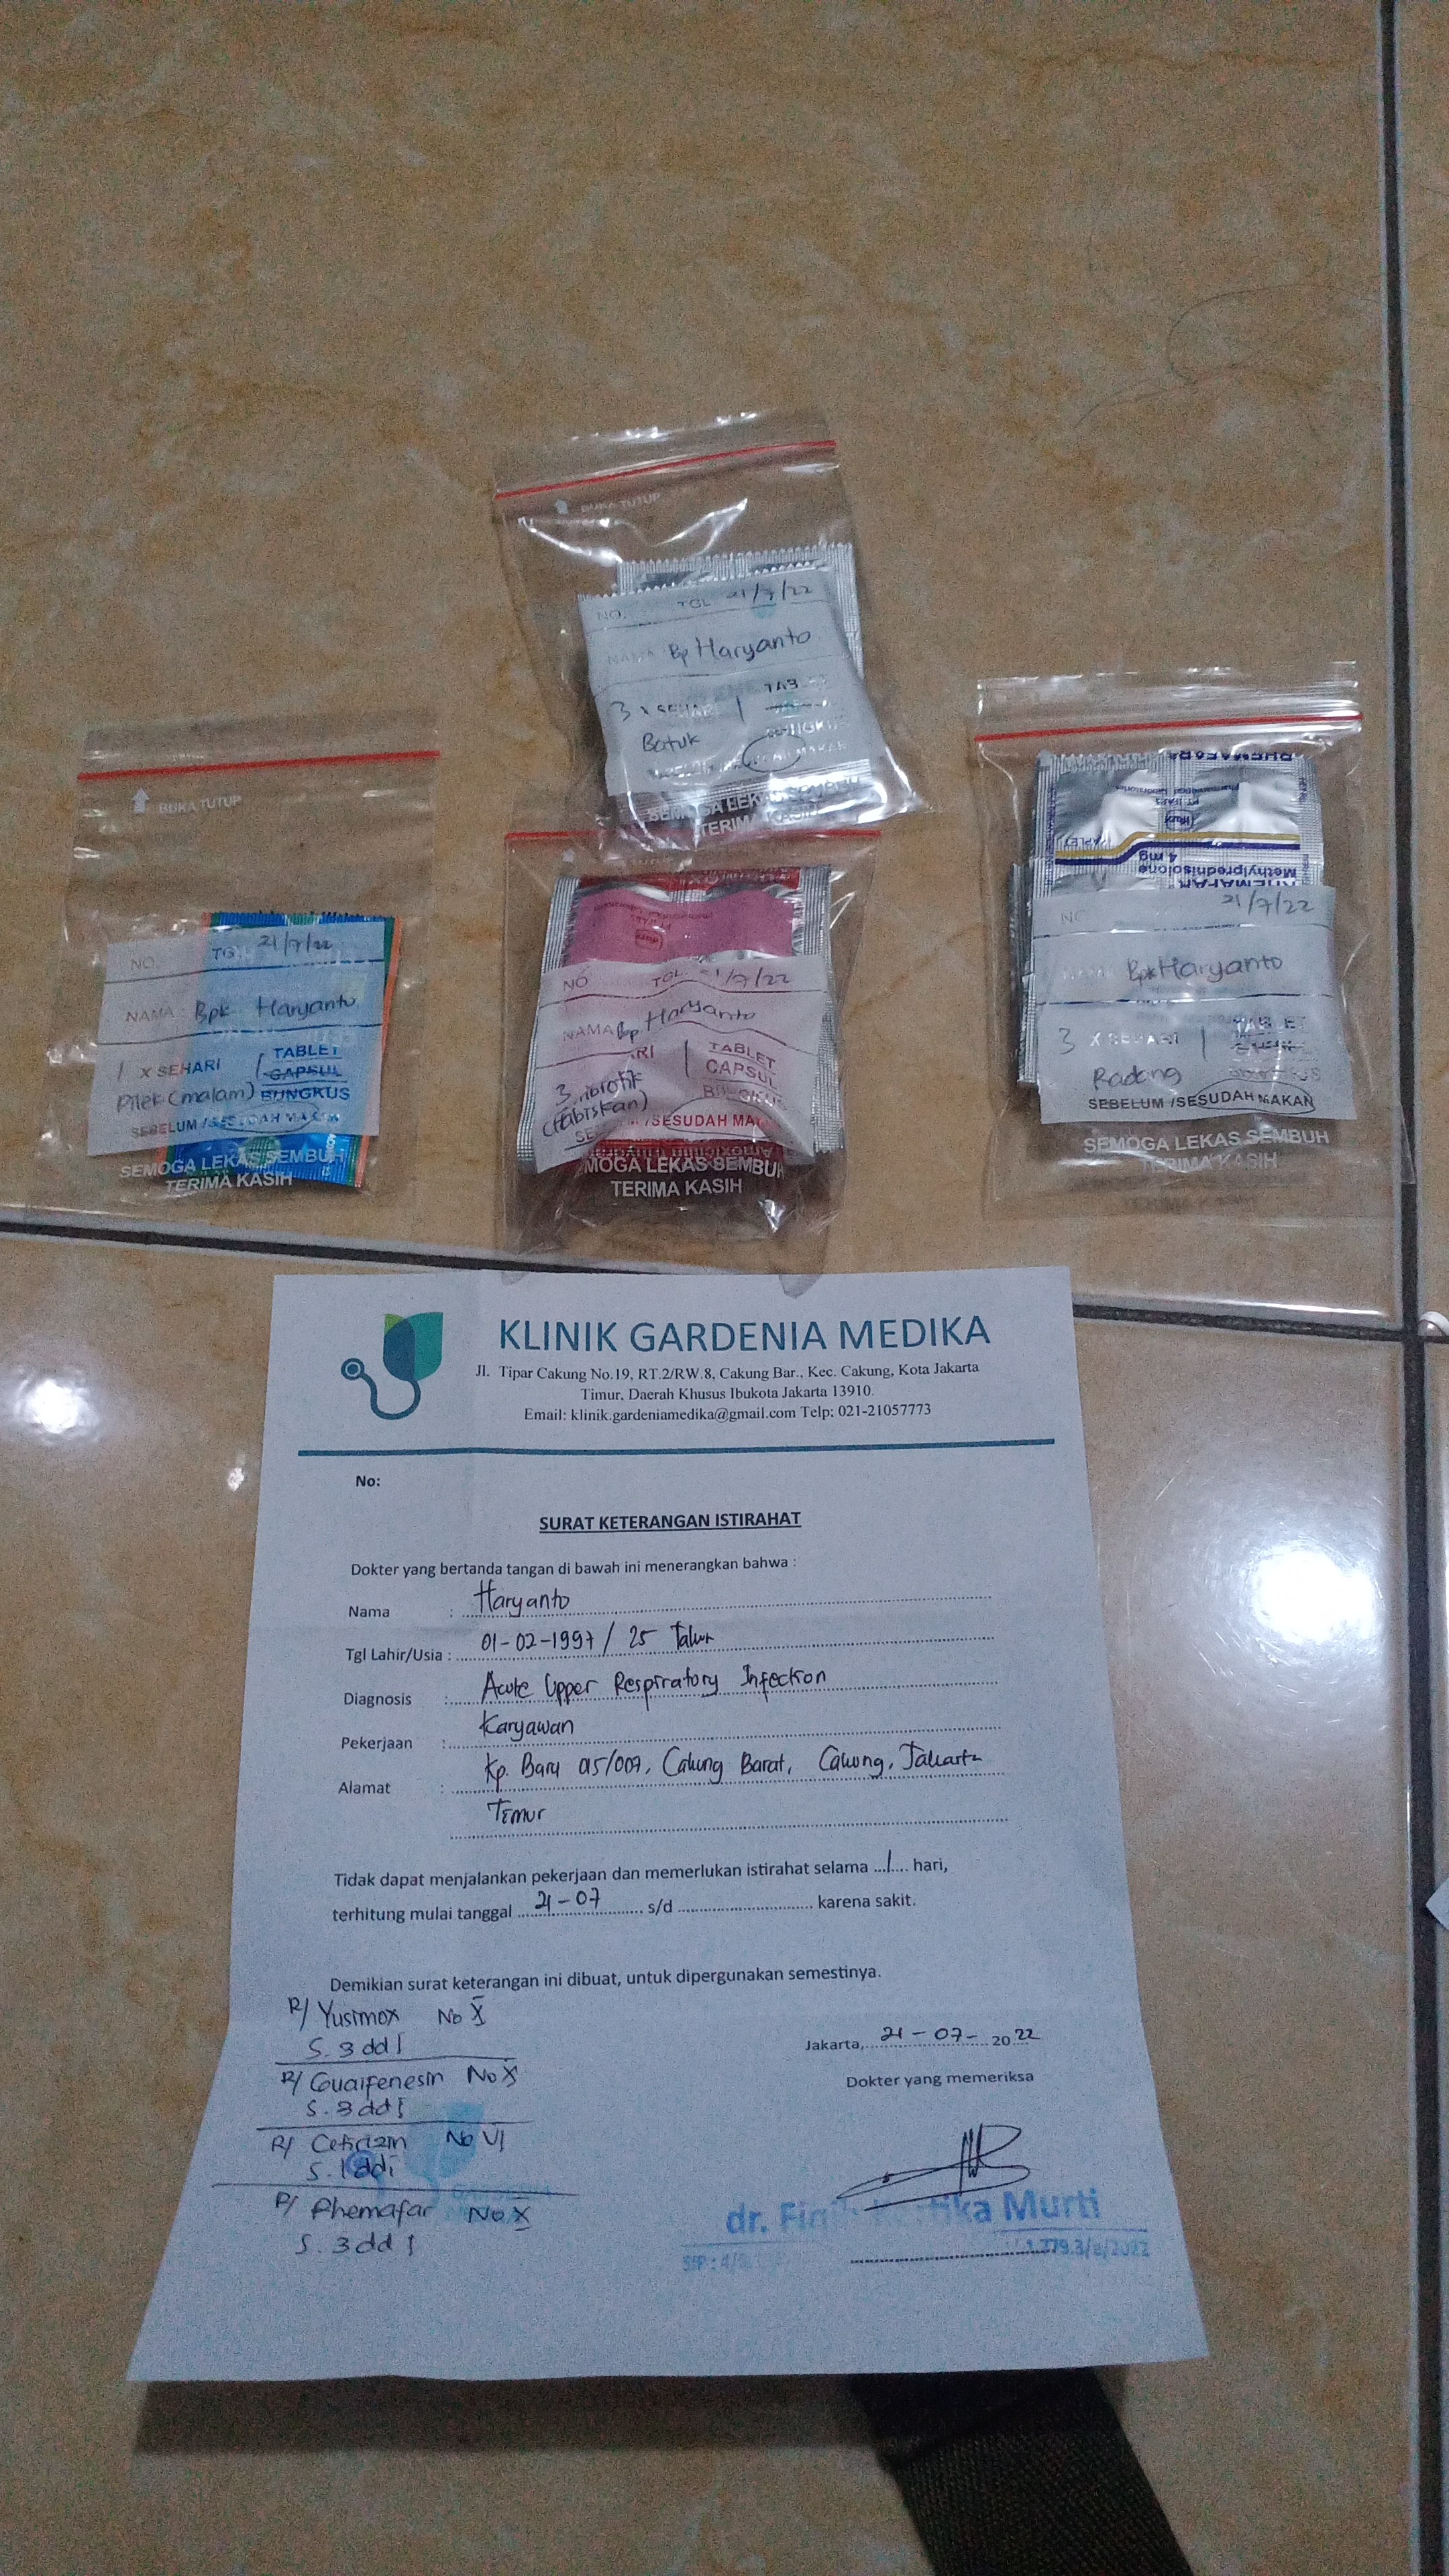 BUKA TUTUP
NO. TGL 21/7/22
NAMA Bp Haryanto
3 X SEHARI 1 TAB
Batuk BUNGKUS
SEMOGA LEKAS SEMBUH
TERIMA KASIH
BUKA TUTUP
NO. TG 21/7/22
NAMA: Bpk Haryanto
1 X SEHARI 1 TABLET
CAPSUL
Pilek (malam) BUNGKUS
SEBELUM / SESUDAH MAKAN
SEMOGA LEKAS SEMBUH
TERIMA KASIH
NO TGL. 21/7/22
NAMA Bp Haryanto
3 ARI 1 TABLET
CAPSUL
(Habiskan)
/SESUDAH MA
Amoxicillin
MOGA LEKAS SEMBUH
TERIMA KASIH
RHEMAFAR
PT IFARS
Pharmaceutical Laboratories
ifars
APLET
4 mg
Methylprednisolone
RHEMAFAR
NO 21/7/22
Bpk Haryanto
3 X SEHARI 1 TABLET
Radang
SEBELUM /SESUDAH MAKAN
SEMOGA LEKAS SEMBUH
TERIMA KASIH
KLINIK GARDENIA MEDIKA
Jl. Tipar Cakung No.19, RT.2/RW.8, Cakung Bar., Kec. Cakung, Kota Jakarta
Timur, Daerah Khusus Ibukota Jakarta 13910.
Email: klinik.gardeniamedika@gmail.com Telp: 021-21057773
No:
SURAT KETERANGAN ISTIRAHAT
Dokter yang bertanda tangan di bawah ini menerangkan bahwa :
Nama : Haryanto
Tgl Lahir/Usia : 01-02-1997 / 25 Tahun
Diagnosis : Acute Upper Respiratory Infection
Pekerjaan : Karyawan
Alamat : Kp. Baru 015/007, Cakung Barat, Cakung, Jakarta
Timur
Tidak dapat menjalankan pekerjaan dan memerlukan istirahat selama ...1.... hari,
terhitung mulai tanggal 21-07 s/d karena sakit.
Demikian surat keterangan ini dibuat, untuk dipergunakan semestinya.
R/ Yusimox No X
S. 3 dd 1
R/ Guaifenesin No X
S. 3 dd 1
R/ Cetirizin No VI
S. 1 dd i
R/ Rhemafar No X
S. 3 dd 1
Jakarta, 21-07- 2022
Dokter yang memeriksa
dr. Murti